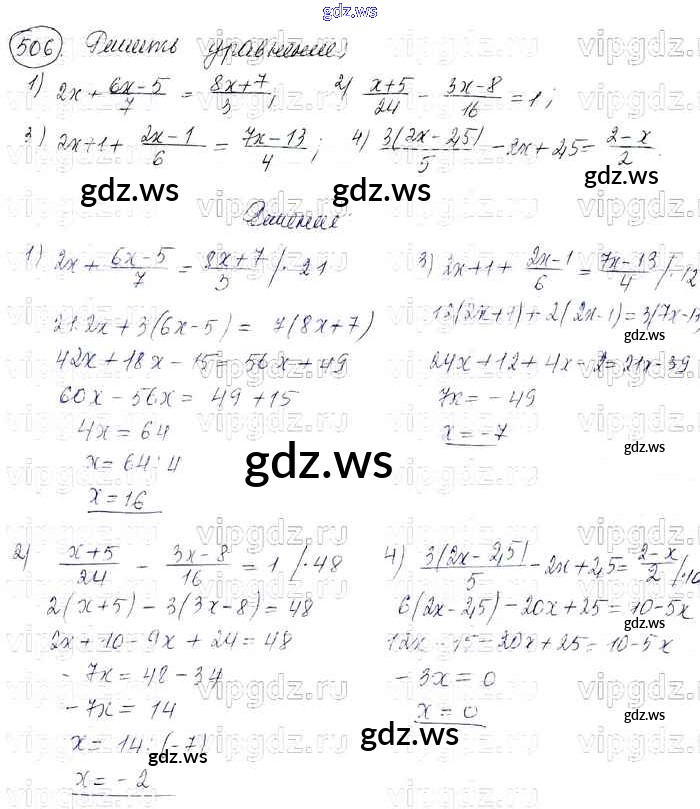 gdz.ws
506. Решить уравнение;
1) 2x + (6x-5)/7 = (8x+7)/3; 2) (x+5)/24 - (3x-8)/16 = 1;
3) 2x+1 + (2x-1)/6 = (7x-13)/4; 4) 3(2x-2,5)/5 - 2x + 2,5 = (2-x)/2.
gdz.ws
gdz.ws
Решение:
1) 2x + (6x-5)/7 = (8x+7)/3 /· 21
21·2x + 3(6x-5) = 7(8x+7)
42x + 18x - 15 = 56x + 49
60x - 56x = 49 + 15
4x = 64
x = 64 : 4
x = 16
3) 2x+1 + (2x-1)/6 = (7x-13)/4 /·12
12(2x+1) + 2(2x-1) = 3(7x-13
24x + 12 + 4x - 2 = 21x - 39
7x = - 49
x = - 7
gdz.ws
gdz.ws
gdz.ws
2) (x+5)/24 - (3x-8)/16 = 1 /·48
2(x+5) - 3(3x-8) = 48
2x + 10 - 9x + 24 = 48
- 7x = 48 - 34
- 7x = 14
x = 14 : (-7)
x = - 2
4) 3(2x-2,5)/5 - 2x + 2,5 = (2-x)/2 /·10
6(2x-2,5) - 20x + 25 = 10 - 5x
12x - 15 - 20x + 25 = 10 - 5x
- 3x = 0
x = 0
gdz.ws
gdz.ws
gdz.ws
vipgdz.ru